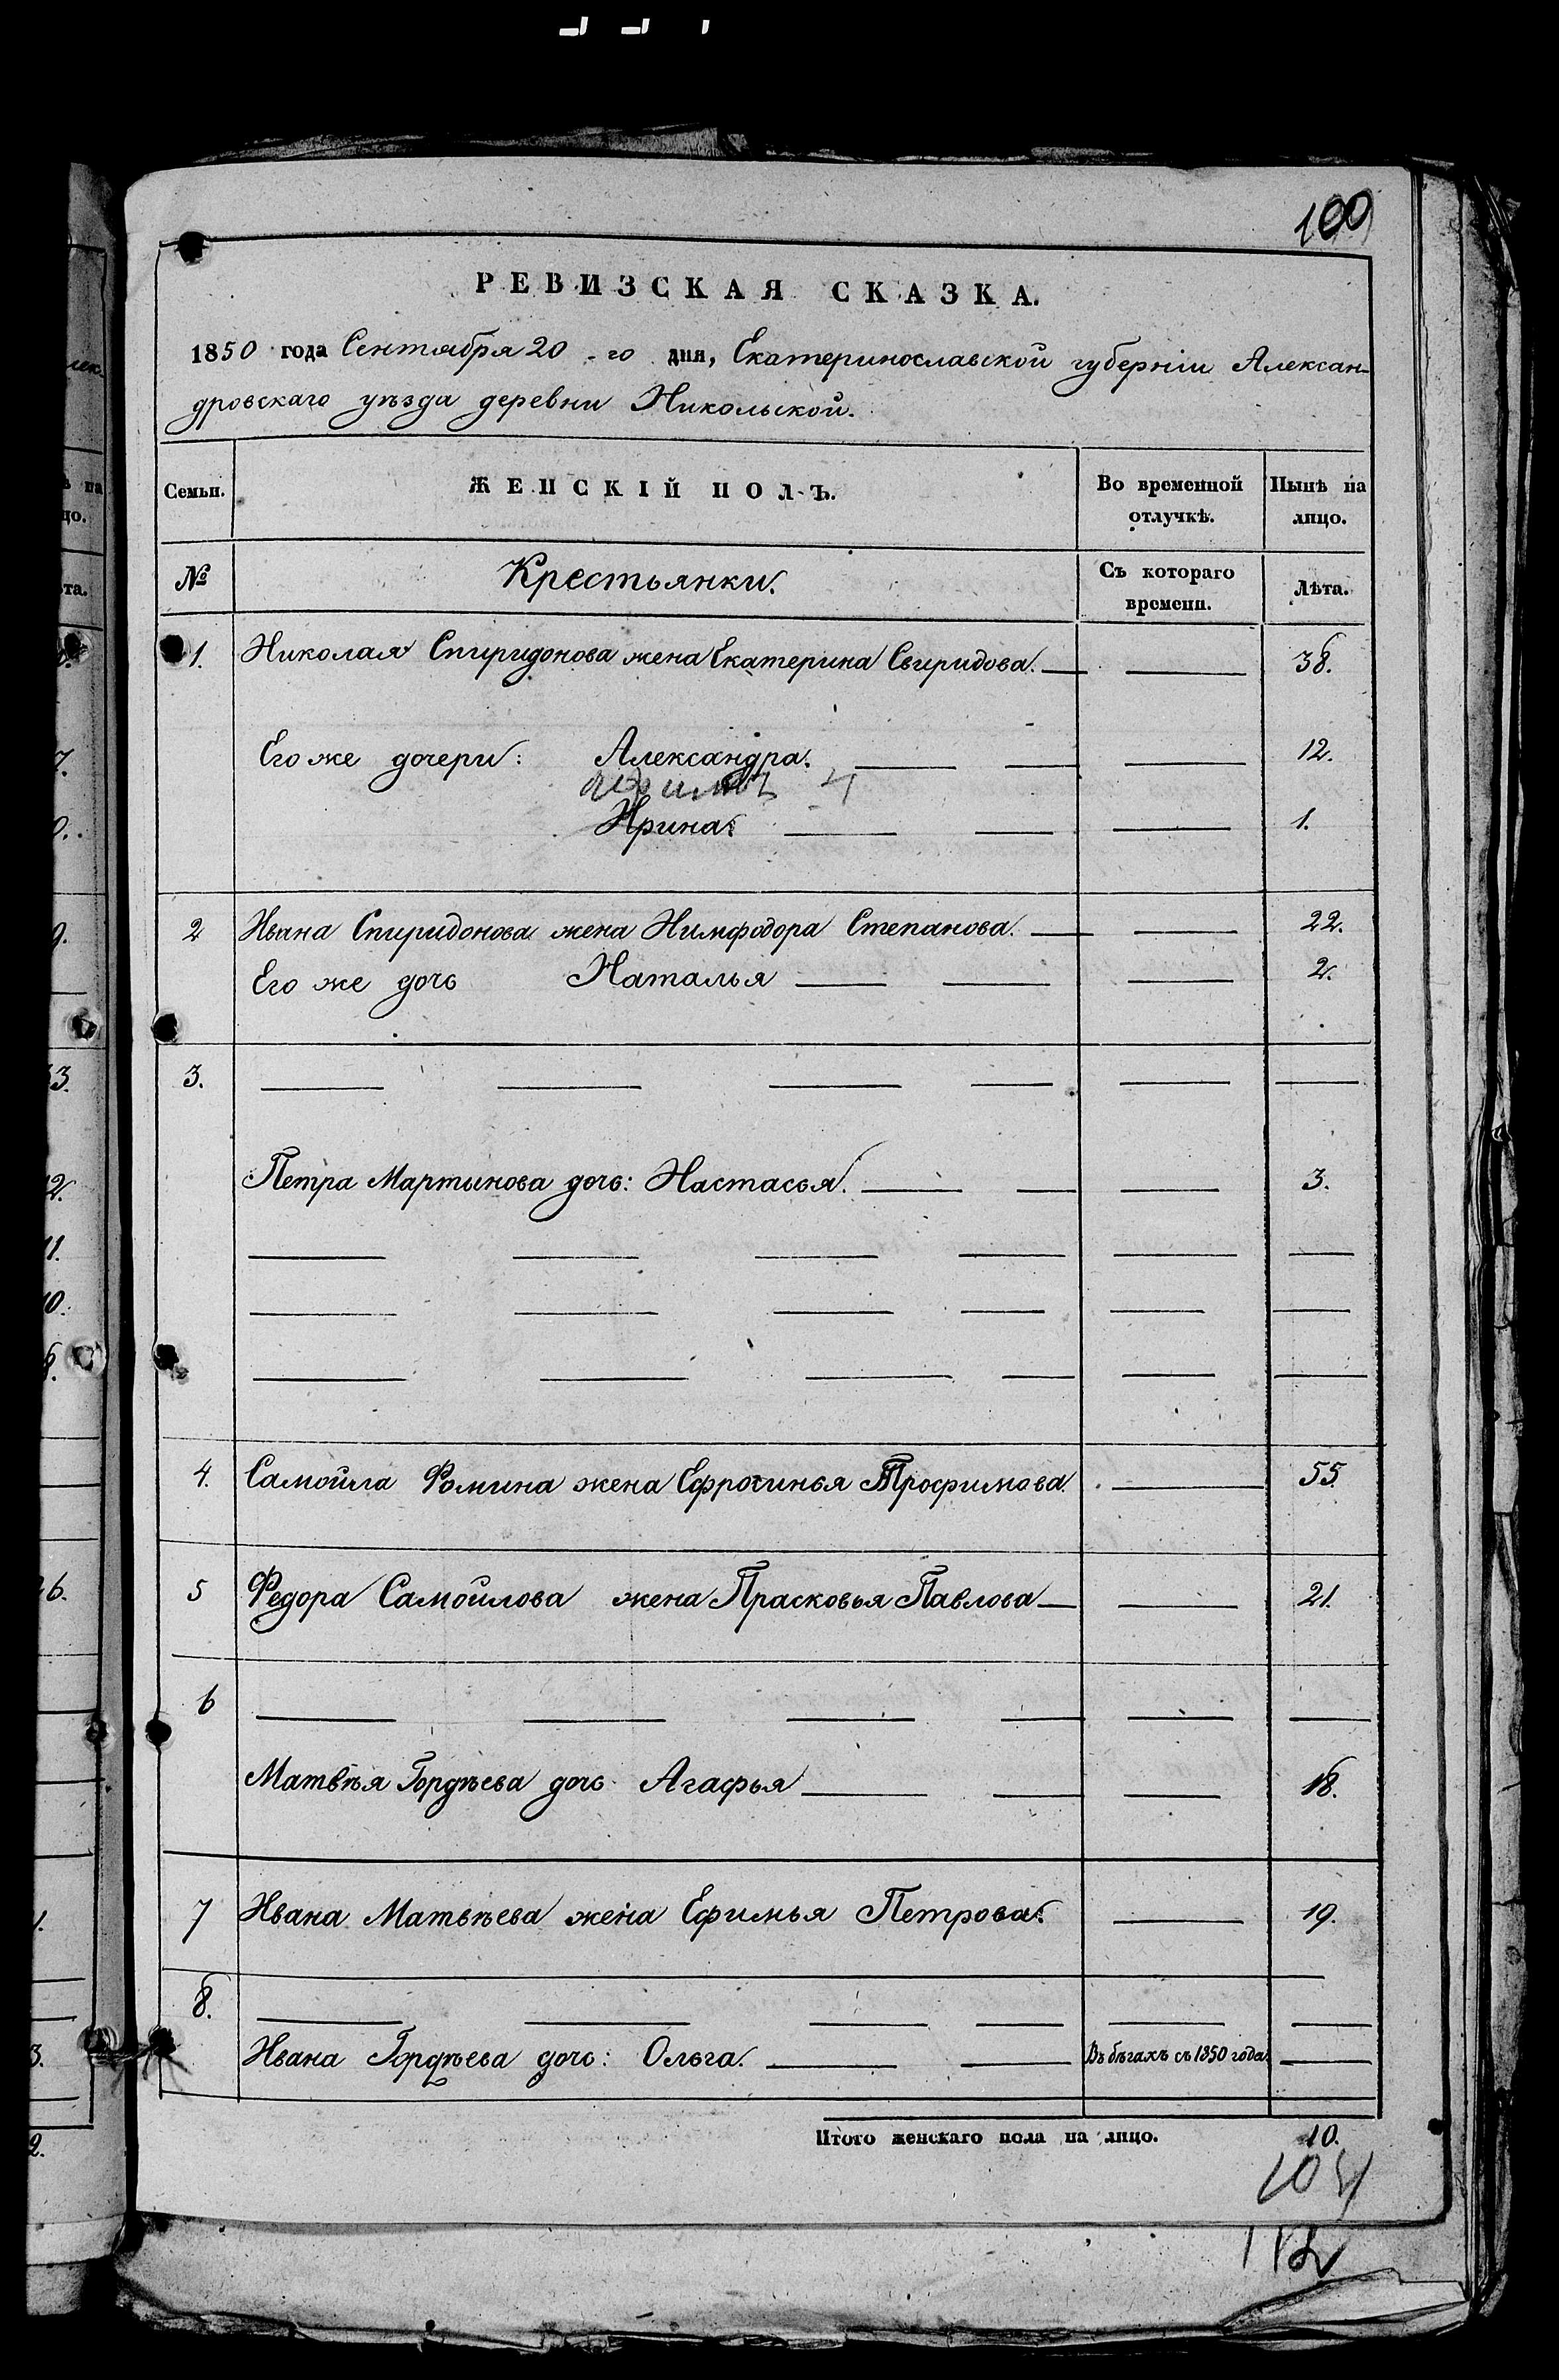 100
РЕВИЗСКАЯ СКАЗКА.
1850 года Сентября 20-го дня, Екатеринославской губерніи Алексан-
дровскаго уѣзда деревни Никольской.
Семьи. ЖЕНСКІЙ ПОЛЪ. Во временной отлучкѣ. Нынѣ на лицо.
№ Крестьянки. Съ котораго времени. Лѣта.
1. Николая Спиридонова жена Екатерина Свиридова. 38.
Его же дочери: Александра. 12.
4
Ирина. 1.
2 Ивана Спиридонова жена Нимфодора Степанова. 22.
Его же дочь Наталья 2.
3.
Петра Мартынова дочь: Настасья. 3.
4. Самойла Фомина жена Ефросинья Трофимова. 55.
5 Федора Самойлова жена Прасковья Павлова 21.
6
Матвѣя Гордѣева дочь Агафья 18.
7 Ивана Матвѣева жена Ефимья Петрова. 19.
8.
Ивана Гордѣева дочь: Ольга. Въ бѣгахъ съ 1850 года.
Итого женскаго пола на лицо. 10.